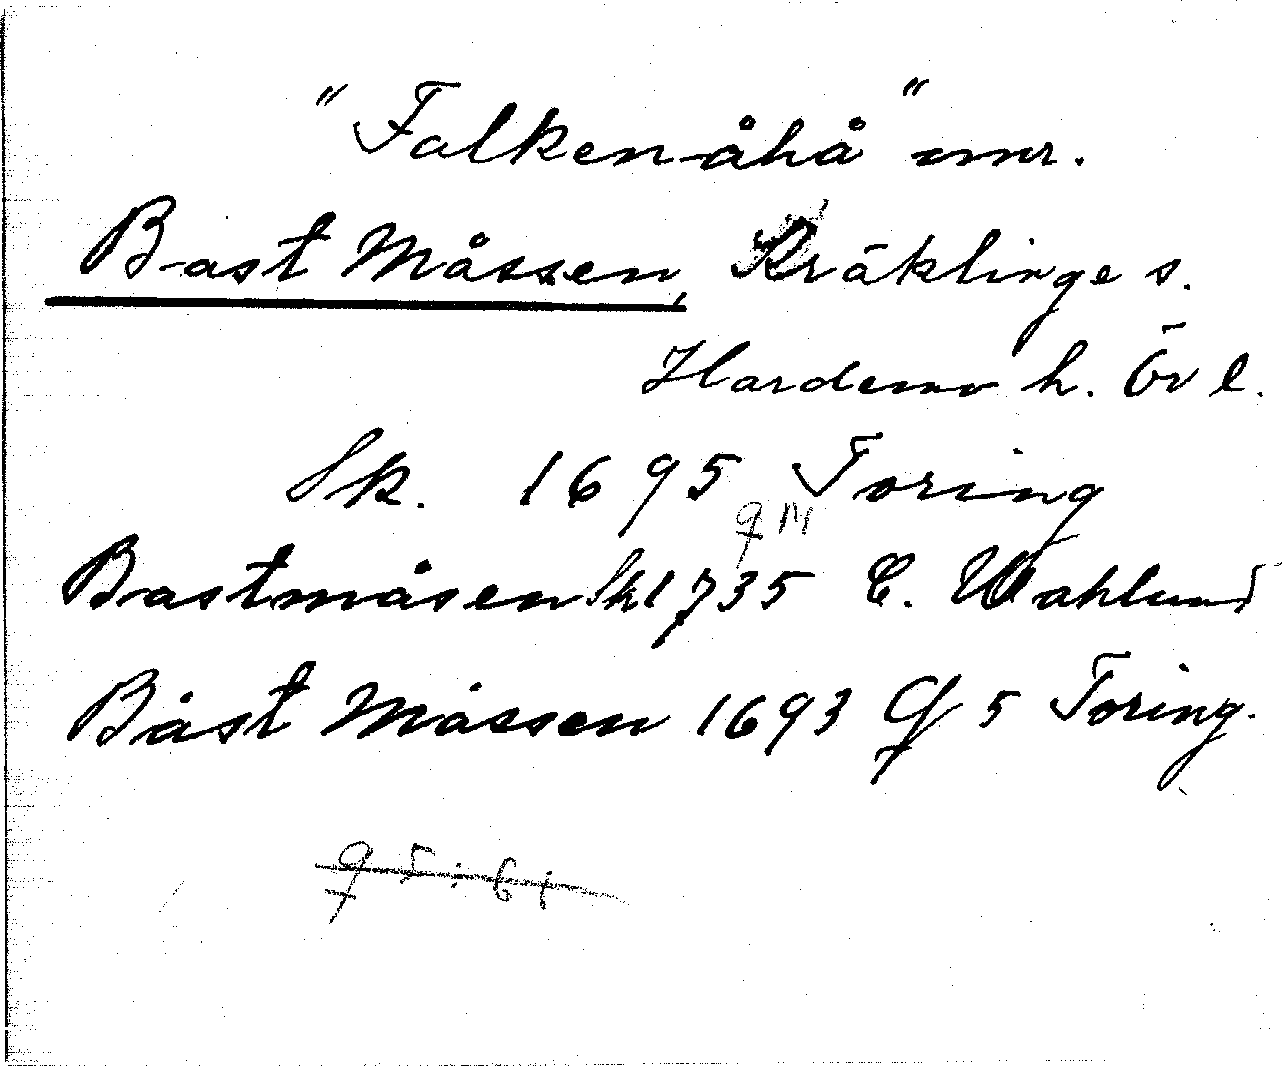 "Falkenåhå" mr.
Bast Måssen, Kräklinge s.
Hardemo h. Ör l.
Sk. 1695 Toring
q 14
Bastmåsen Sk 1735 C. Wahlund
Båst Måssen 1693 q 5 Toring.
q 5:61